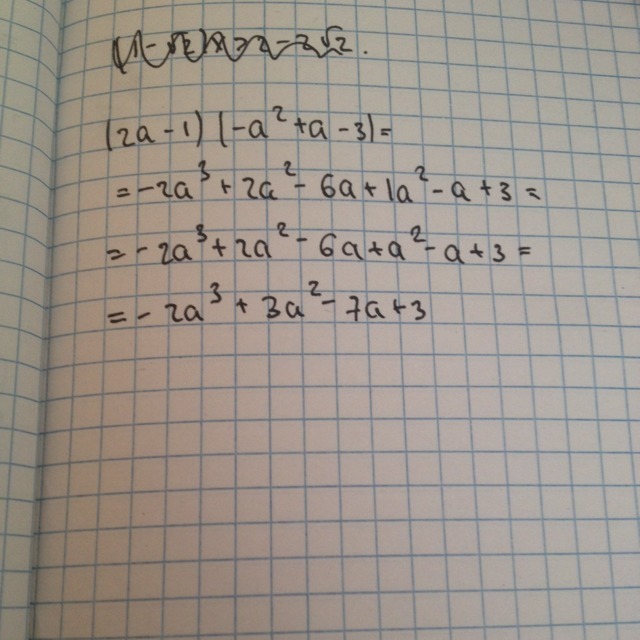 (2a-1)(-a²+a-3)=
=-2a³+2a²-6a+1a²-a+3=
=-2a³+2a²-6a+a²-a+3=
=-2a³+3a²-7a+3